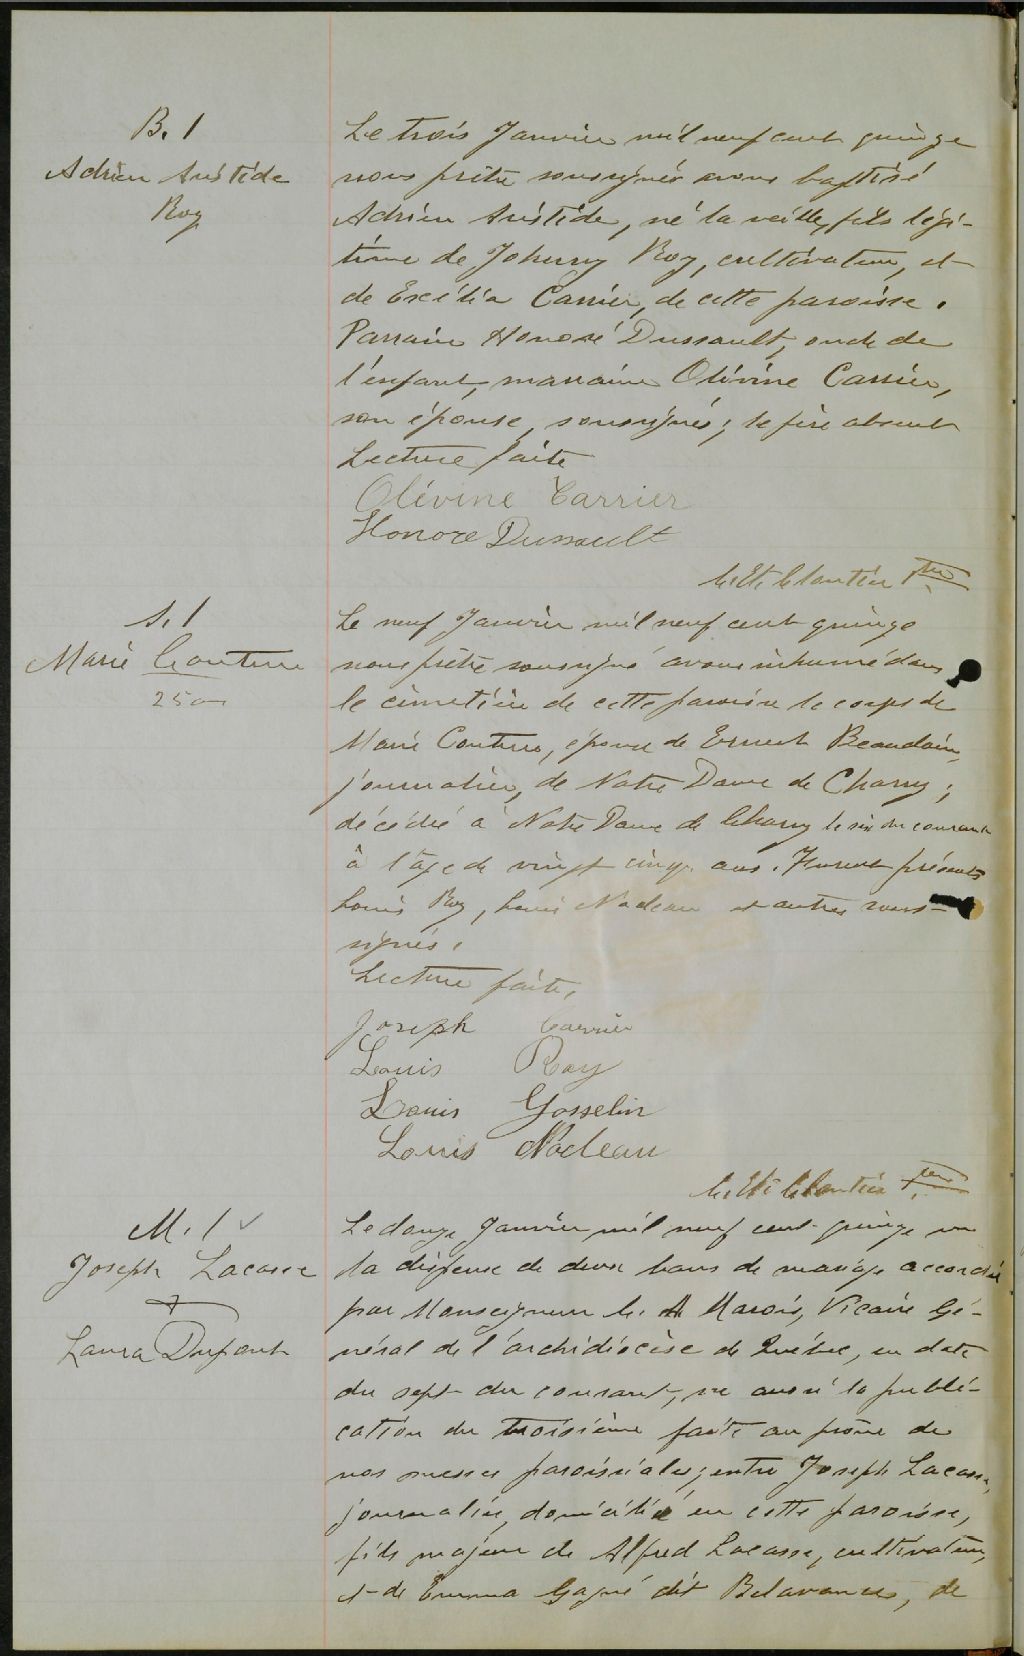 B. 1
Adrien Aristide
Roy
Le trois Janvier mil neuf cent quinze
nous prêtre soussigné avons baptisé
Adrien Aristide, né la veille, fils légi-
time de Johnny Roy, cultivateur, et
de Exélia Carrier, de cette paroisse.
Parrain Honoré Dussault, oncle de
l'enfant, marraine Olévine Carrier,
son épouse, soussignés; le père absent
Lecture faite
Olévine Carrier
Honore Dussault
Ptre
S. 1
Marie Couture
25 ans
Le neuf Janvier mil neuf cent quinze
nous prêtre soussigné avons inhumé dans
le cimetière de cette paroisse le corps de
Marie Couture, épouse de Ernest Beaudoin,
journalier, de Notre Dame de Charny;
décédée à Notre Dame de Charny le six du courant
à l'âge de vingt cinq ans. Furent présents
Louis Roy, Louis Nadeau et autres sous-
signés.
Lecture faite,
Joseph Carrier
Louis Roy
Louis Gosselin
Louis Nadeau
Ptre
M. 1 ✓
Joseph Lacasse
+
Laura Dupont
Le douze Janvier mil neuf cent quinze vu
la dispense de deux bans de mariage accordée
par Monseigneur C. A Marois, Vicaire Gé-
néral de l'archidiocèse de Québec, en date
du sept du courant, vu aussi la publi-
cation du troisième faite au prône de
nos messes paroissiales; entre Joseph Lacasse,
journalier, domicilié en cette paroisse,
fils majeur de Alfred Lacasse, cultivateur,
et de Emma Gagné dit Belavance, de